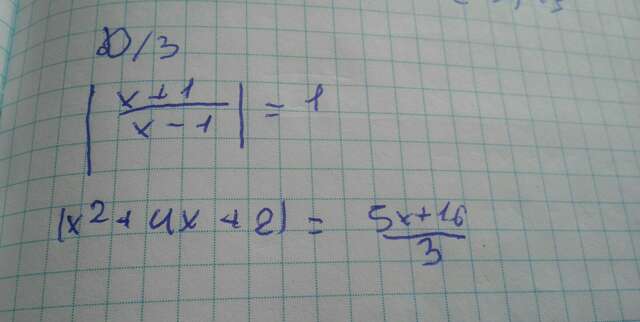 D/З
|x+1/x-1| = 1
|x²+4x+2| = 5x+16/3